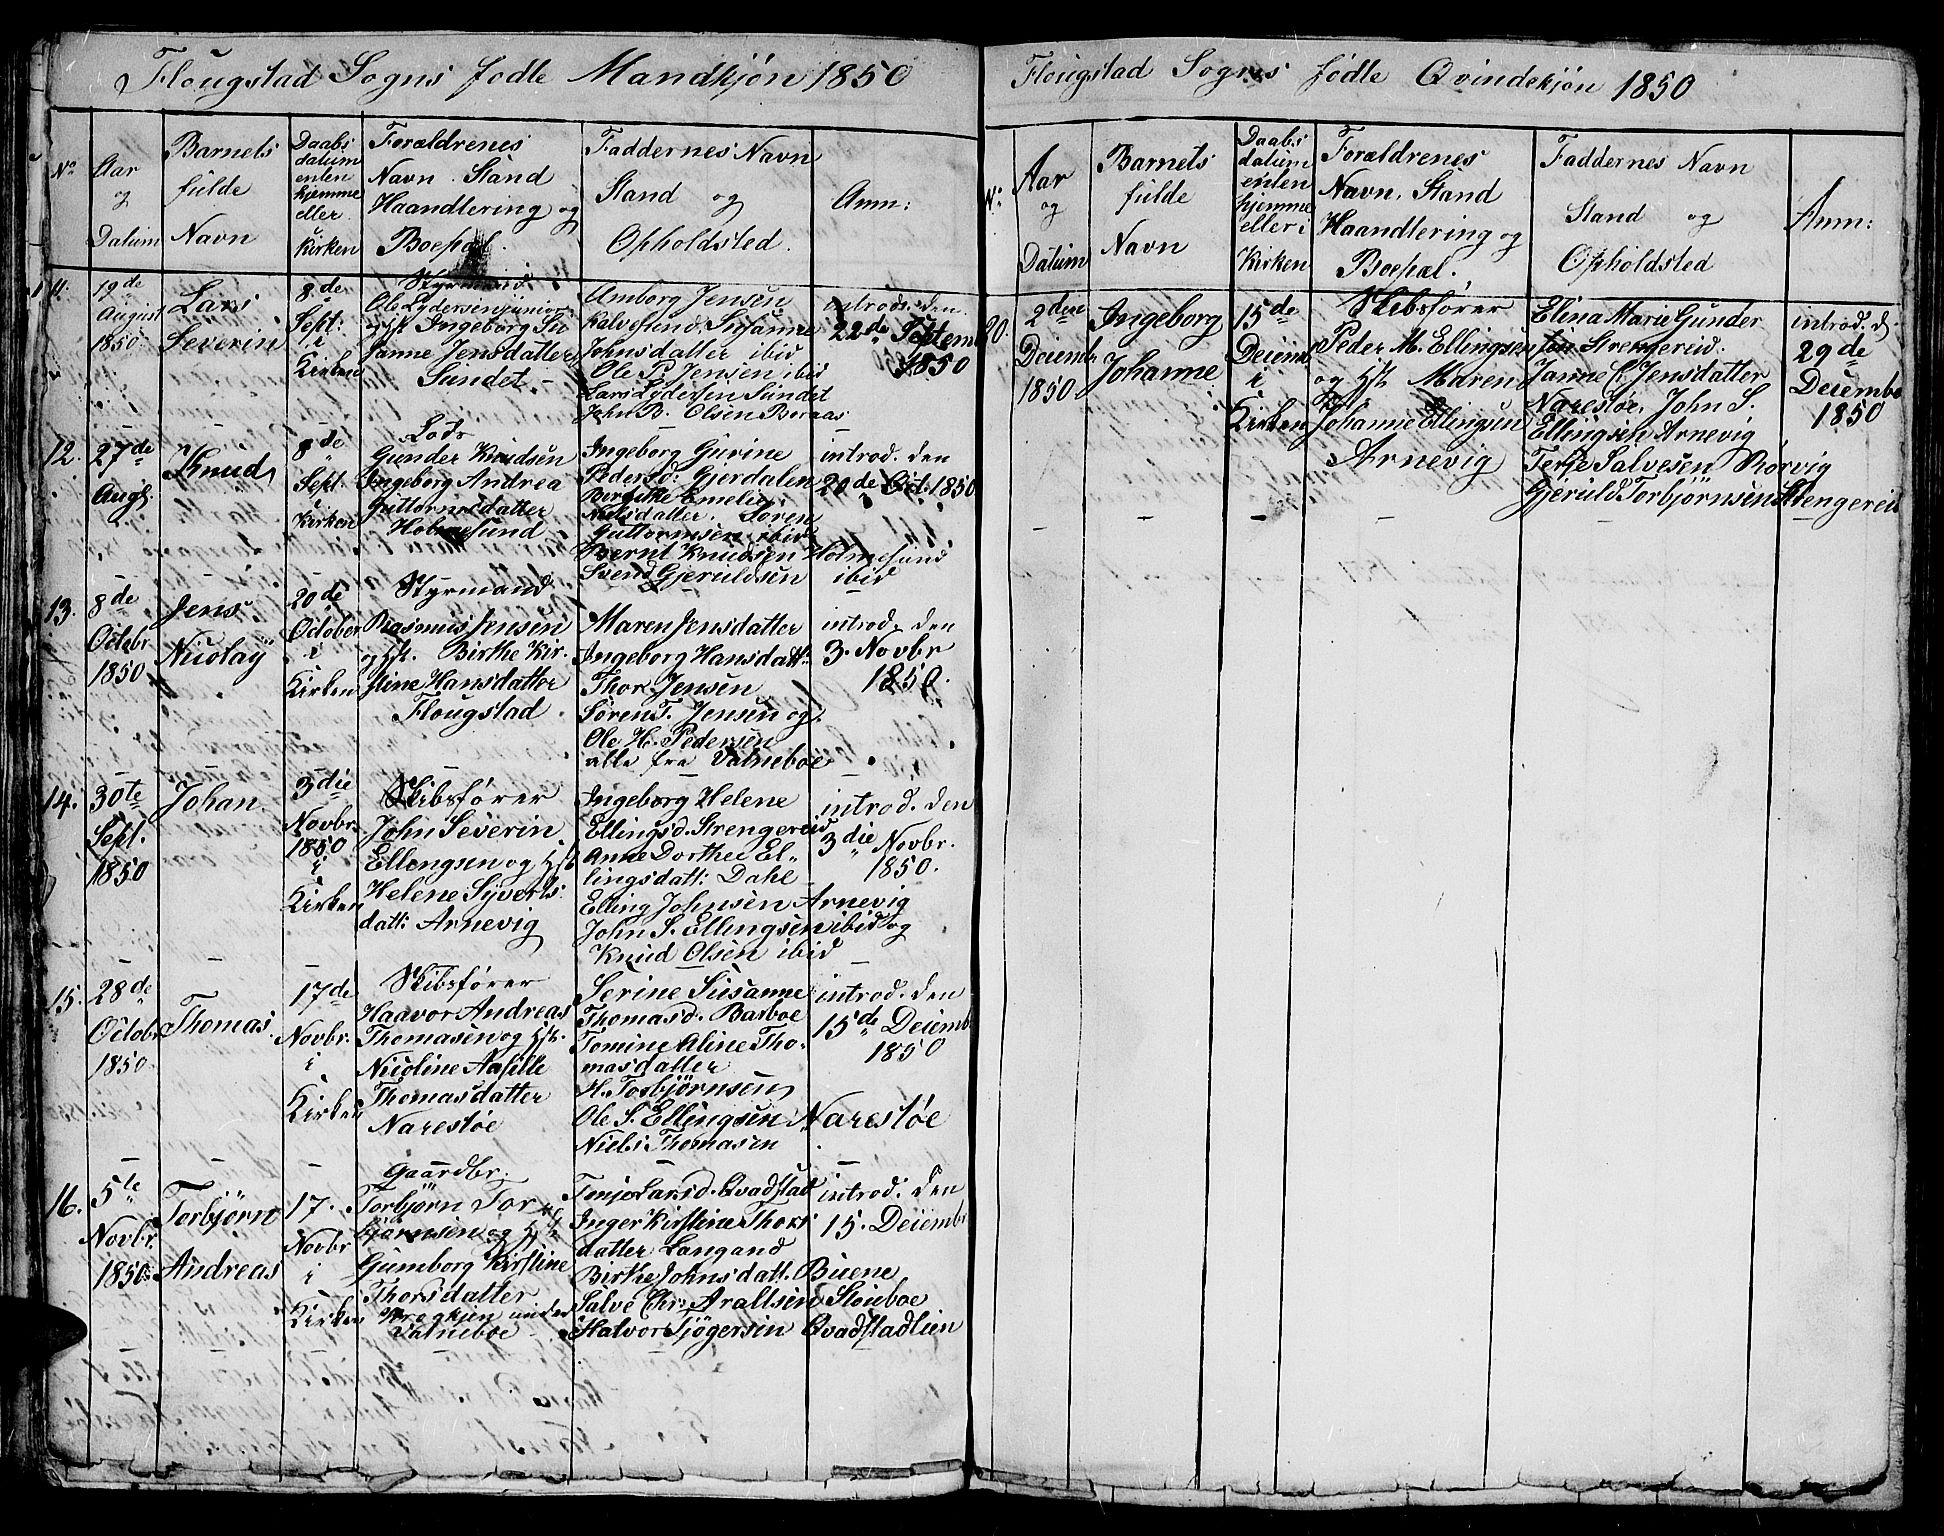 Flougstad Sogns fødte Mandkjøn 1850
No
Aar
og
Datum
Barnets
fulde
Navn
Daabs
datum
enten
hjemme
eller
Kirken
Forældrenes
Navn. Stand
Haandtering og
Boepæl.
Faddernes Navn
Stand og
Opholdsted.
Anm:
11.
19de
August
1850
Lars
Severin
8de
Sept:
i
Kirken
Styrmand
Ole Lydersen junior
og Hst Ingeborg Su
sanne Jensdatter
Sundet.
Amborg Jensen
Kalvesund. Susanne
Johnsdatter ibid
Ole P. Jensen ibid
Lars Lydersen Sundet
John B. Olsen Boraas
introd: den
22de Septem
1850
12.
27de
Augt
Knud
8de
Sept
i
Kirken
Lods
Gunder Knudsen
Ingeborg Andrea
Guttormsdatter
Holmesund
Ingeborg Gurine
Pedersd: Gjerdalen
Birgitte Emelie
Nielsdatter. Søren
Guttormsen ibid
Bernt Knudsen Holmesund
Svend Gjeruldsen ibid
introd. den
20de Oct. 1850
13.
8de
Octobr
1850
Jens
Nicolaÿ
20de
October
i
Kirken
Styrmand
Rasmus Jensen
og Hst. Birthe Kir-
stine Hansdatter
Flougstad
Maren Jensdatter
Ingeborg Hansdatt:
Thor Jensen
Søren T. Jensen og
Ole H. Pedersen
alle fra Valneboe
introd. den
3. Novbr
1850.
14.
30te
Sept.
1850
Johan.
3die
Novbr.
1850
i
Kirken
Skibsfører
John Severin
Ellingsen og Hst
Helene Syverts
datt: Arnevig
Ingeborg Helene
Ellingsd. Strengereid
Anne Dorthee El-
lingsdatt: Dahl
Elling Johnsen Arnevig
John S. Ellingsen ibid og
Knud Olsen ibid
introd. den
3die Novbr.
1850.
15.
28de
Octobr
1850
Thomas.
17de
Novbr.
i
Kirken
Skibsfører
Haavor Andreas
Thomasen og Hst.
Nicoline Aasille
Thomasdatter
Narestøe
Serine Susanne
Thomasd. Barboe
Tomine Aline Tho-
masdatter
H. Torbjørnsen
Ole S. Ellingsen Narestøe
Niels Thomasen
introd. den
15de Decemb
1850
16.
5te
Novbr.
1850
Torbjørn
Andreas
17.
Novbr
i
Kirken
Gaardbr.
Torbjørn Tor
bjørnsen og Hst
Gumborg Kirstine
Thorsdatter
under
Valneboe
Tonje Larsd. Qvadstad
Inger Kirstine Thors
datter Langand
Birthe Johnsdatt. Buene
Salve Chr: Araltsen Støleboe
Halvor Tjøgersen Qvadstadlien
introd. den
15. Decembr
Flougstad Sogns fødte Qvindekjøn 1850
No:
Aar
og
Datum
Barnets
fulde
Navn
Daabs
datum
enten
hjemme
eller i
Kirken
Forældrenes
Navn. Stand
Haandtering og
Boepæl.
Faddernes Navn
Stand og
Opholdsted
Anm:
20.
2den
Decembr
1850.
Ingeborg
Johanne
15de
Decemb
i
Kirken
Skibsfører
Peder M. Ellingsen
og Hst Maren
Johanne Ellingsen
Arnevig
Elina Marie Gunder
sen Strengereid.
Janne C. Jensdatter
Narestøe. John S.
Ellingsen Arnevig
Terje Salvesen Rorvig
Gjeruld Torbjørnsen Strengereid
introd. d.
29de
Decembr
1850